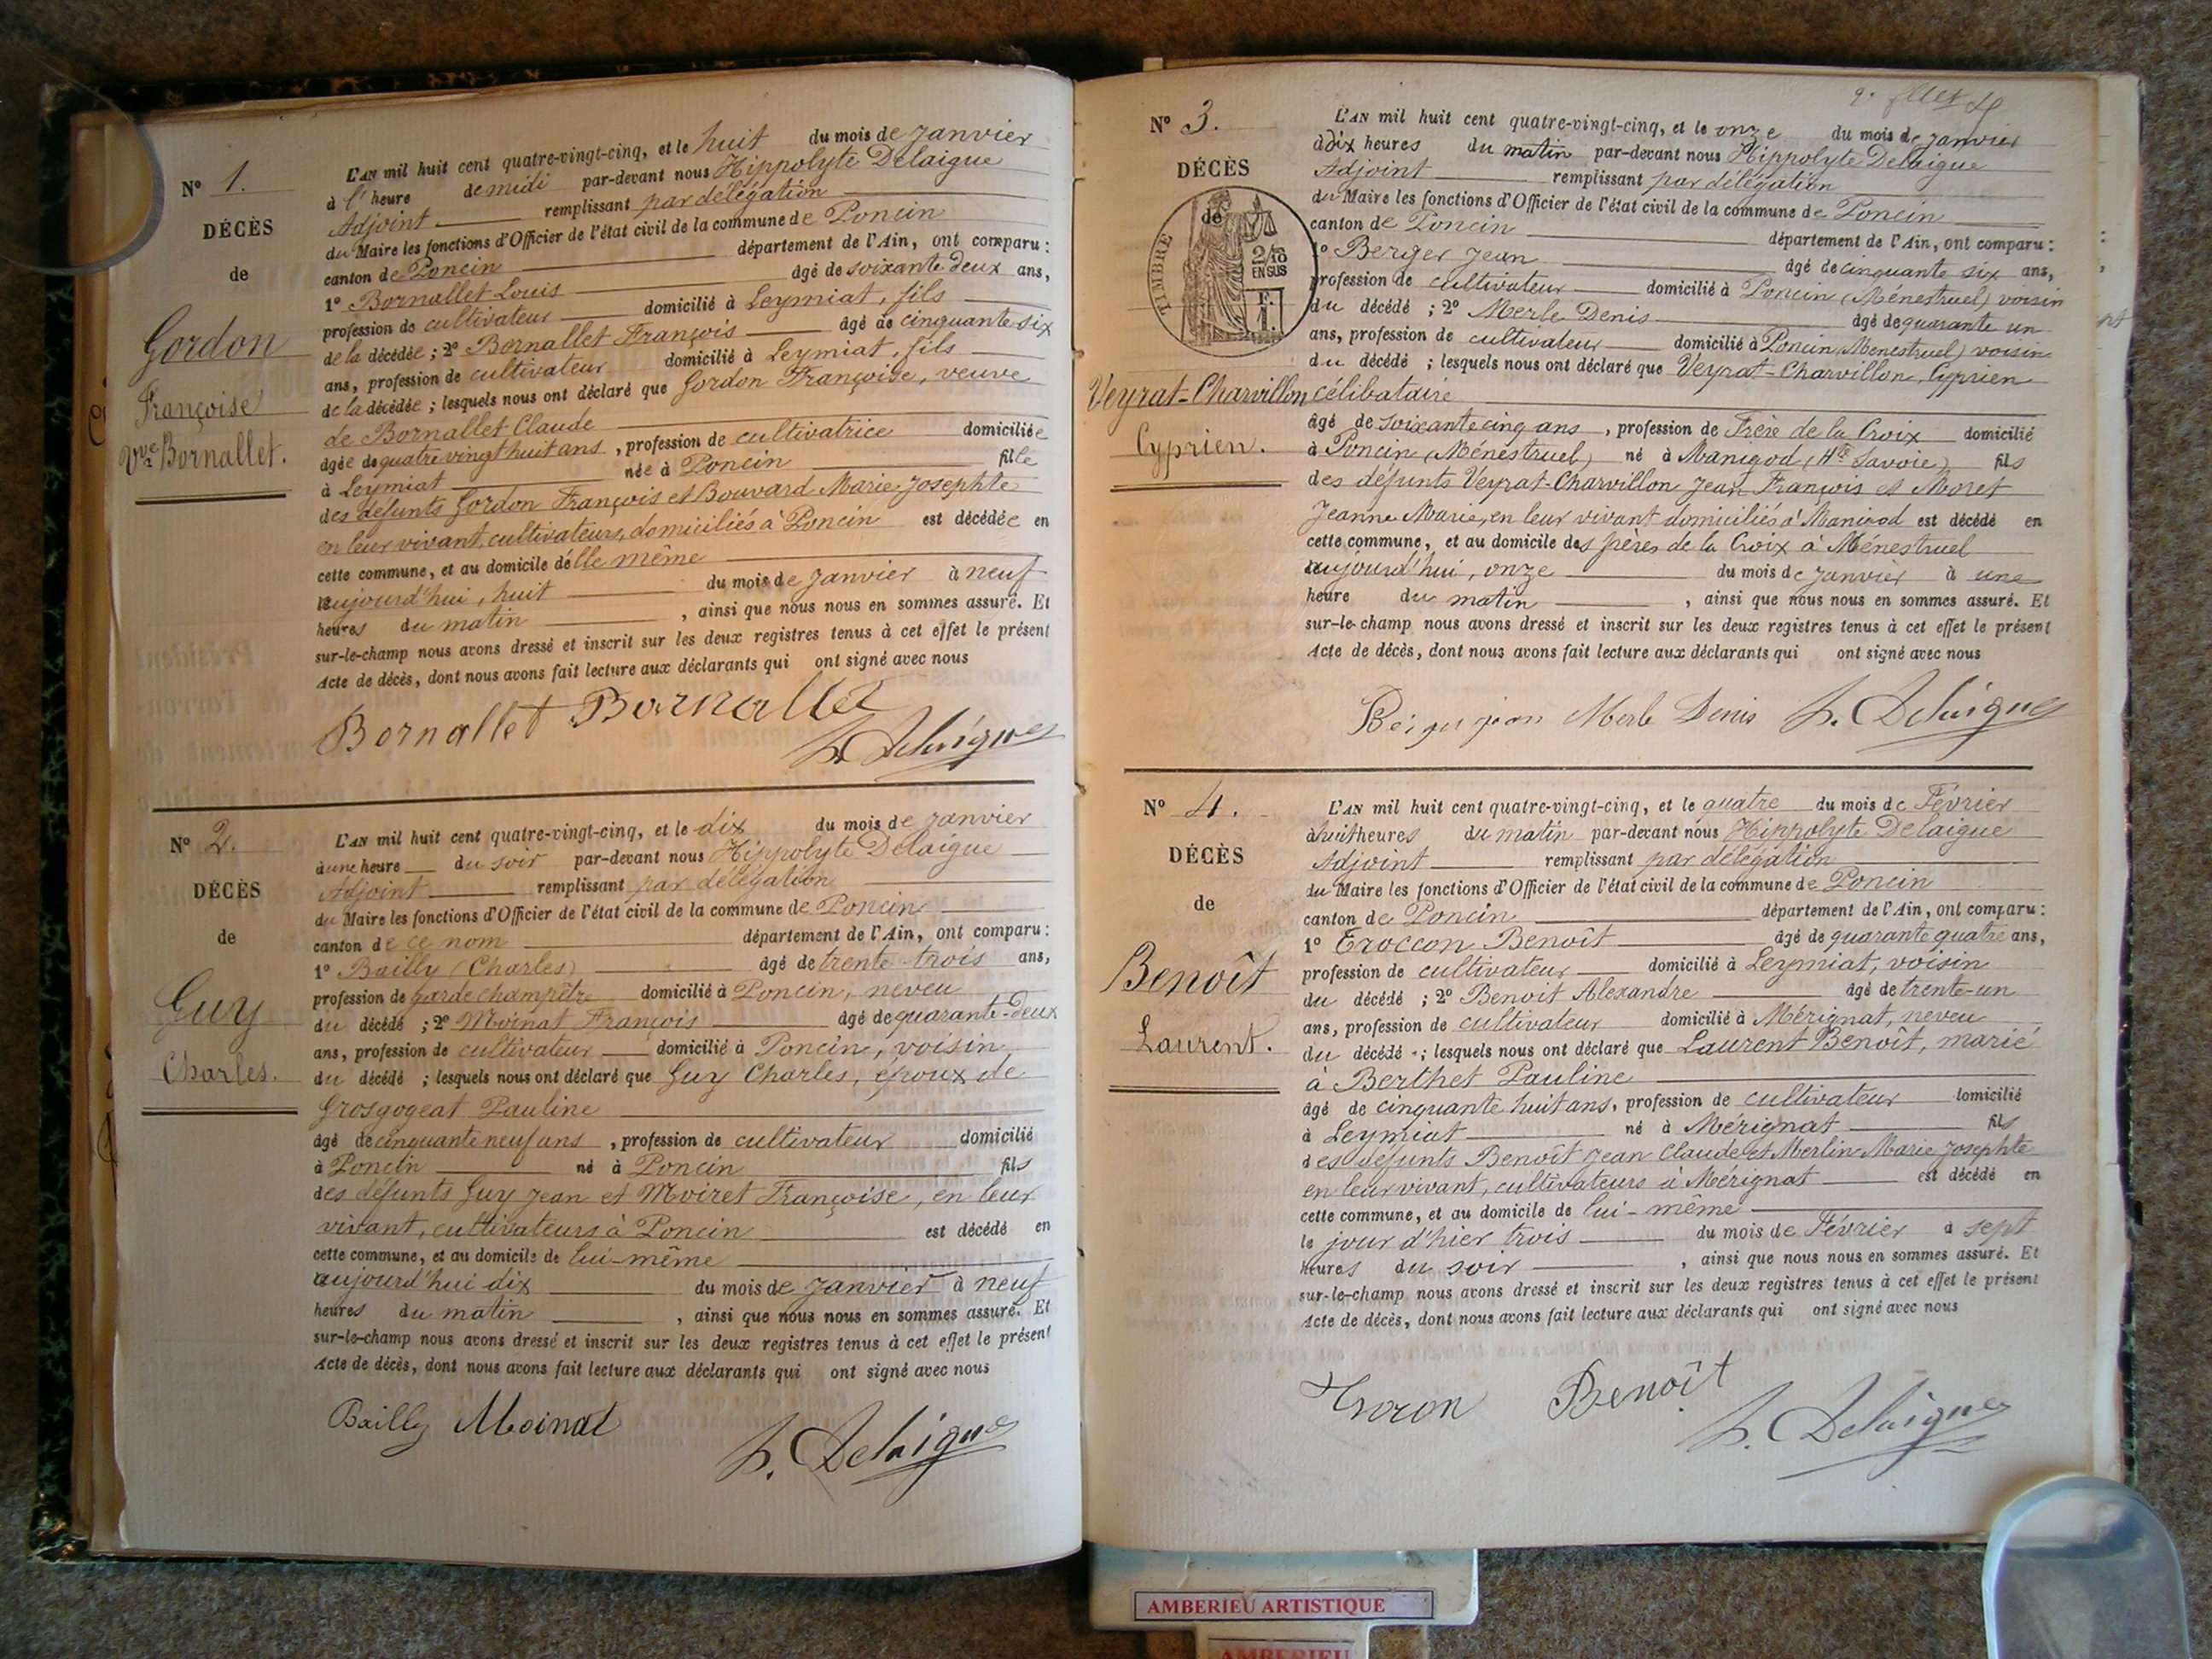 N° 1.
DÉCÈS
de
Gordon
Françoise
Vve Bornallet.
L'AN mil huit cent quatre-vingt-cinq, et le huit du mois de Janvier
à l' heure de midi par-devant nous Hippolyte Delaigue
Adjoint remplissant par délégation
du Maire les fonctions d'Officier de l'état civil de la commune de Poncin
canton de Poncin département de l'Ain, ont comparu :
1° Bornallet Louis âgé de soixante deux ans,
profession de cultivateur domicilié à Leymiat, fils
de la décédée ; 2° Bornallet François âgé de cinquante six
ans, profession de cultivateur domicilié à Leymiat, fils
de la décédée ; lesquels nous ont déclaré que Gordon Françoise, veuve
de Bornallet Claude
âgée de quatre vingt huit ans, profession de cultivatrice domiciliée
à Leymiat née à Poncin fille
des défunts Gordon François et Bouvard Marie Josephte
en leur vivant, cultivateurs, domiciliés à Poncin est décédée en
cette commune, et au domicile d'elle même
aujourd'hui, huit du mois de Janvier à neuf
heures du matin, ainsi que nous nous en sommes assuré. Et
sur-le-champ nous avons dressé et inscrit sur les deux registres tenus à cet effet le présent
Acte de décès, dont nous avons fait lecture aux déclarants qui ont signé avec nous
Bornallet Bornallet
h. Delaigue
N° 2.
DÉCÈS
de
Guy
Charles.
L'AN mil huit cent quatre-vingt-cinq, et le dix du mois de Janvier
à une heure du soir par-devant nous Hippolyte Delaigue
Adjoint remplissant par délégation
du Maire les fonctions d'Officier de l'état civil de la commune de Poncin
canton de ce nom département de l'Ain, ont comparu :
1° Bailly (Charles) âgé de trente trois ans,
profession de garde champêtre domicilié à Poncin, neveu
du décédé ; 2° Moinat François âgé de quarante-deux
ans, profession de cultivateur domicilié à Poncin, voisin
du décédé ; lesquels nous ont déclaré que Guy Charles, époux de
Grosgogeat Pauline
âgé de cinquante neuf ans, profession de cultivateur domicilié
à Poncin né à Poncin fils
des défunts Guy Jean et Moiret Françoise, en leur
vivant, cultivateurs à Poncin est décédé en
cette commune, et au domicile de lui-même
aujourd'hui dix du mois de Janvier à neuf
heures du matin, ainsi que nous nous en sommes assuré. Et
sur-le-champ nous avons dressé et inscrit sur les deux registres tenus à cet effet le présent
Acte de décès, dont nous avons fait lecture aux déclarants qui ont signé avec nous
Bailly Moinat
h. Delaigue
N° 3.
DÉCÈS
de
TIMBRE
2/10
EN SUS
F.
1.
Veyrat-Charvillon
Cyprien.
L'AN mil huit cent quatre-vingt-cinq, et le onze du mois de Janvier
à dix heures du matin par-devant nous Hippolyte Delaigue
Adjoint remplissant par délégation
du Maire les fonctions d'Officier de l'état civil de la commune de Poncin
canton de Poncin département de l'Ain, ont comparu :
1° Berger Jean âgé de cinquante six ans,
profession de cultivateur domicilié à Poncin (Ménestruel) voisin
du décédé ; 2° Merle Denis âgé de quarante un
ans, profession de cultivateur domicilié à Poncin (Menestruel) voisin
du décédé ; lesquels nous ont déclaré que Veyrat-Charvillon Cyprien
célibataire
âgé de soixante cinq ans, profession de Frère de la Croix domicilié
à Poncin (Ménéstruel) né à Manigod (Hte Savoie) fils
des défunts Veyrat-Charvillon Jean François et Moret
Jeanne Marie, en leur vivant domiciliés à Manigod est décédé en
cette commune, et au domicile des frères de la Croix à Ménestruel
aujourd'hui, onze du mois de Janvier à une
heure du matin, ainsi que nous nous en sommes assuré. Et
sur-le-champ nous avons dressé et inscrit sur les deux registres tenus à cet effet le présent
Acte de décès, dont nous avons fait lecture aux déclarants qui ont signé avec nous
Berger jean Merle Denis h. Delaigue
N° 4.
DÉCÈS
de
Benoît
Laurent.
L'AN mil huit cent quatre-vingt-cinq, et le quatre du mois de Février
à huit heures du matin par-devant nous Hippolyte Delaigue
Adjoint remplissant par délégation
du Maire les fonctions d'Officier de l'état civil de la commune de Poncin
canton de Poncin département de l'Ain, ont comparu :
1° Troccon Benoît âgé de quarante quatre ans,
profession de cultivateur domicilié à Leymiat, voisin
du décédé ; 2° Benoit Alexandre âgé de trente-un
ans, profession de cultivateur domicilié à Mérignat, neveu
du décédé ; lesquels nous ont déclaré que Laurent Benoît, marié
à Berthet Pauline
âgé de cinquante huit ans, profession de cultivateur domicilié
à Leymiat né à Mérignat fils
des défunts Benoît Jean Claude et Merlin Marie Josephte
en leur vivant, cultivateurs à Mérignat est décédé en
cette commune, et au domicile de lui-même
le jour d'hier trois du mois de Février à sept
heures du soir, ainsi que nous nous en sommes assuré. Et
sur-le-champ nous avons dressé et inscrit sur les deux registres tenus à cet effet le présent
Acte de décès, dont nous avons fait lecture aux déclarants qui ont signé avec nous
Benoît
h. Delaigue
AMBERIEU ARTISTIQUE
AMBERIEU